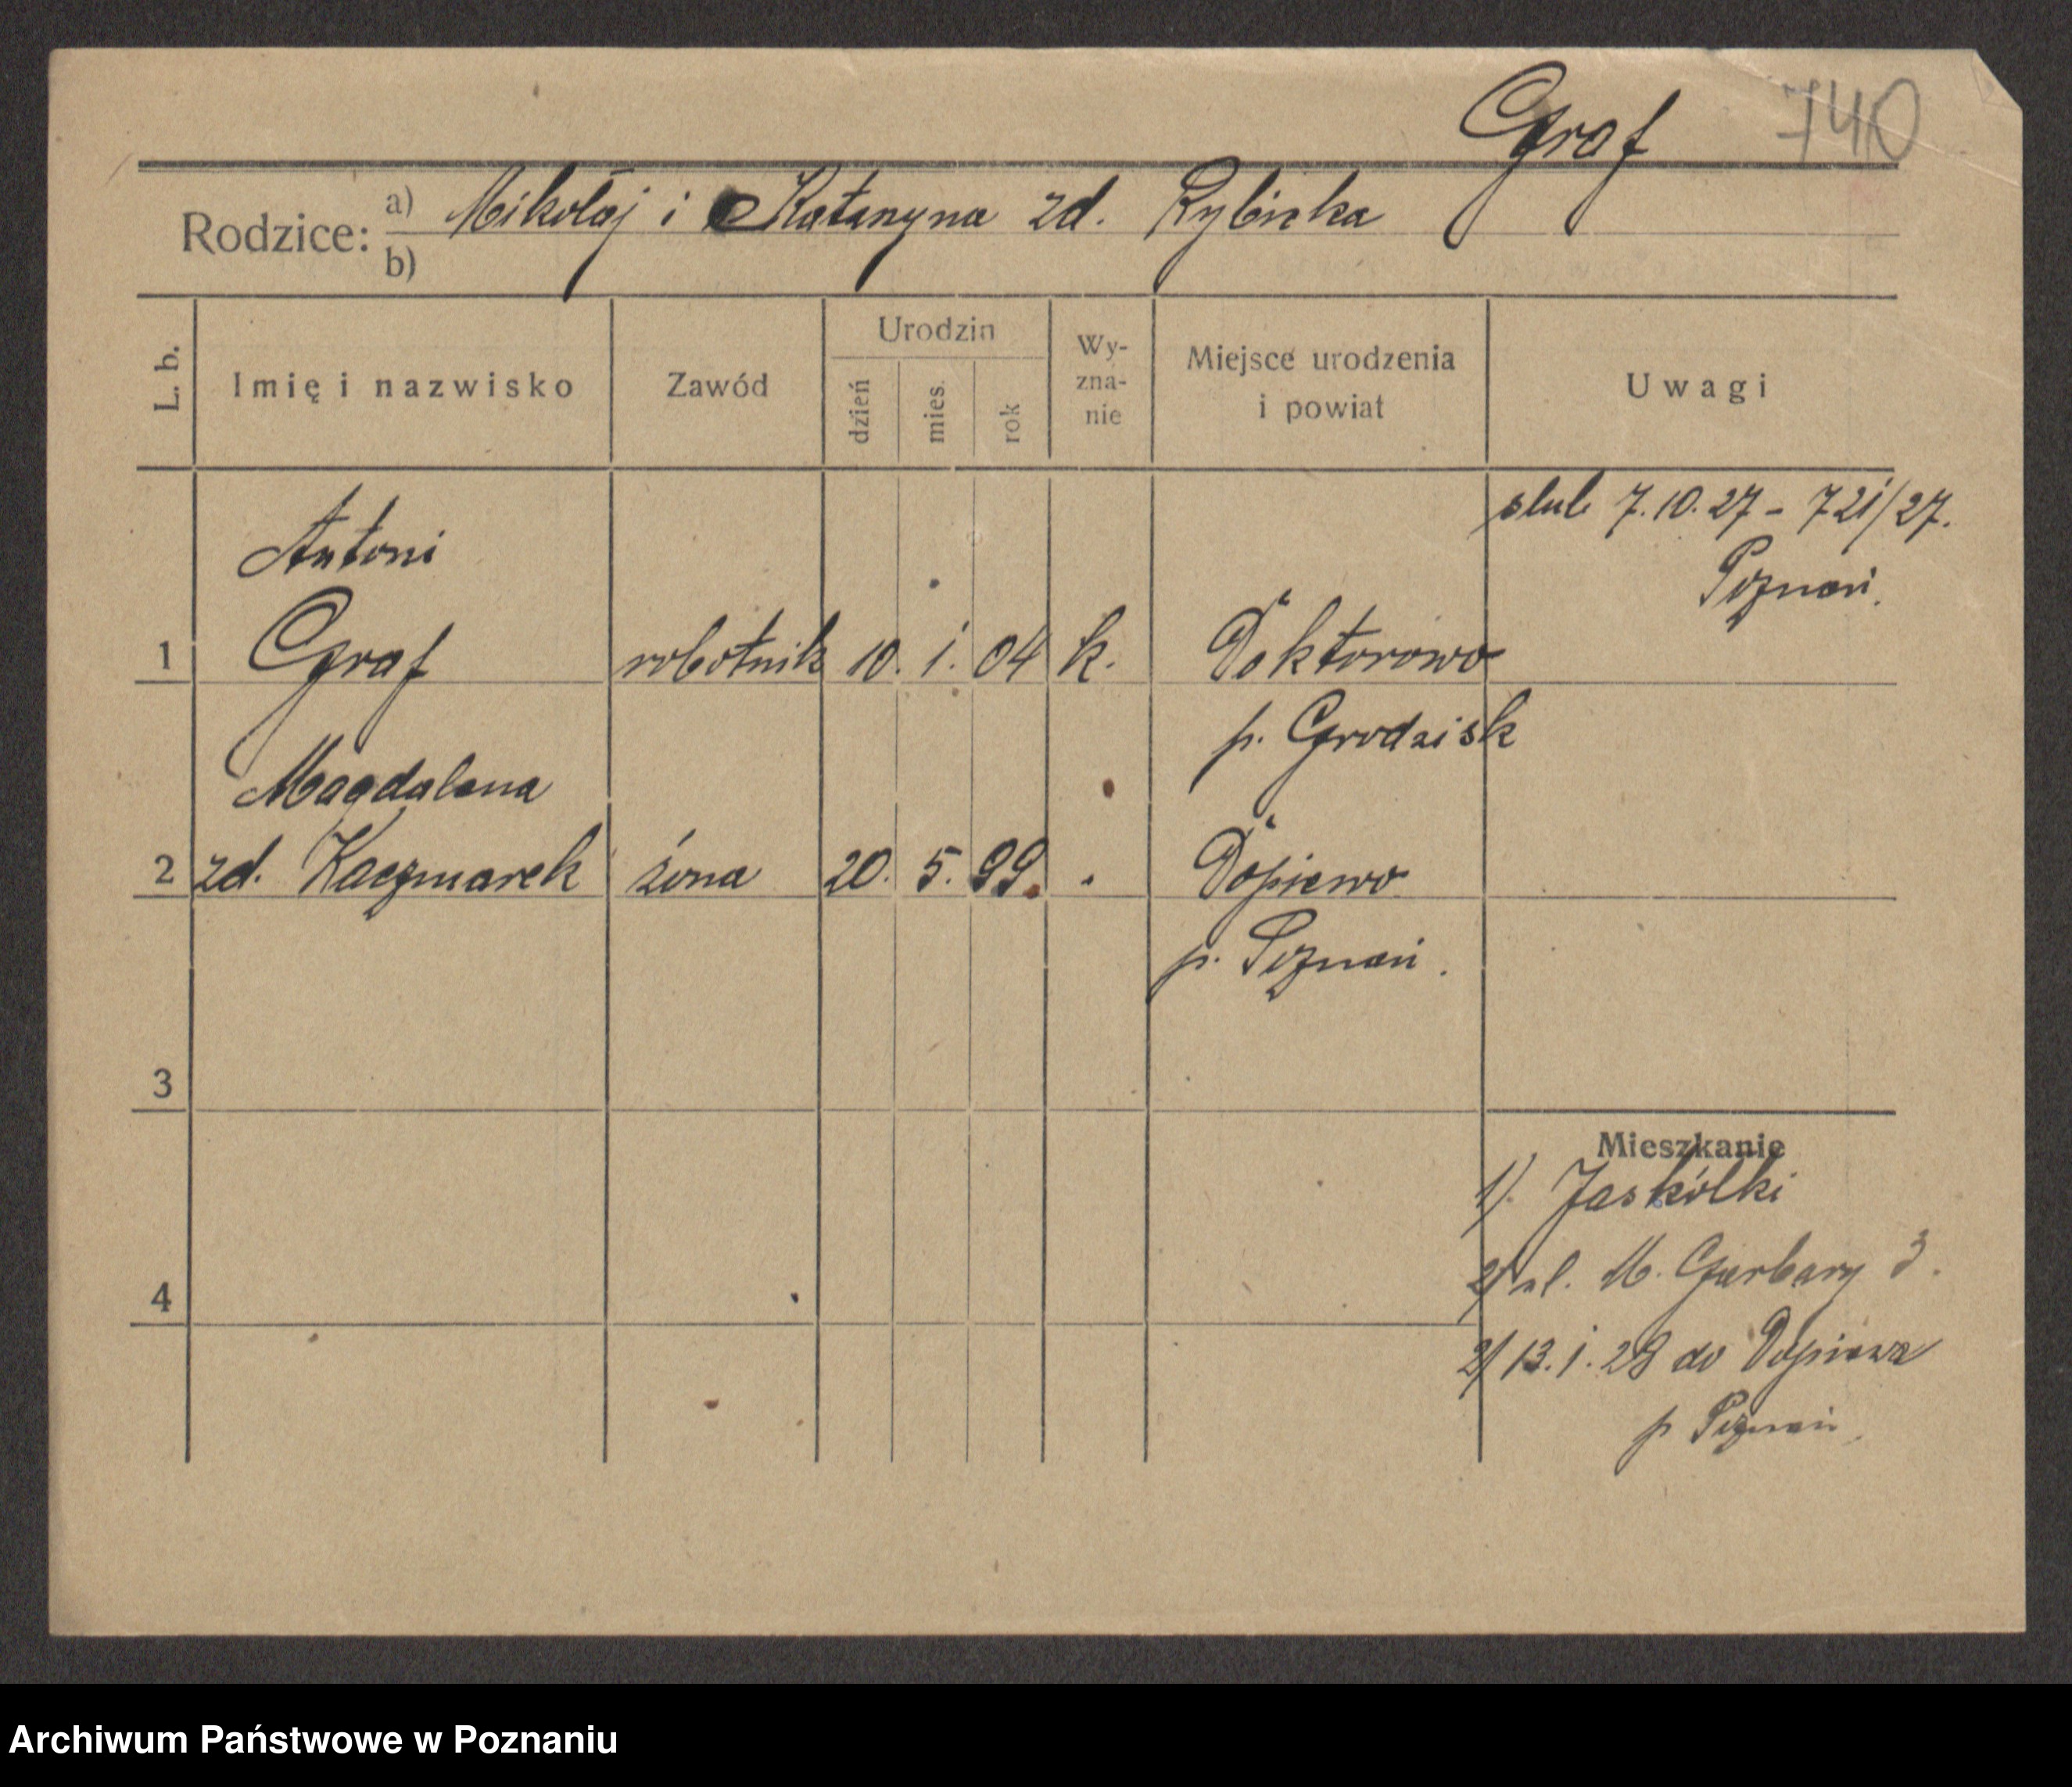 Graf 740
Rodzice: a) Mikołaj i Katarzyna zd. Rybicka
b)
L. b.
Imię i nazwisko
Zawód
Urodzin
dzień
mies.
rok
Wy-
zna-
nie
Miejsce urodzenia
i powiat
Uwagi
ślub 7.10.27 - 721/27.
Poznań.
Antoni
1 Graf robotnik 10. 1. 04 k. Doktorowo
p. Grodzisk
Magdalena
2 zd. Kaczmarek żona 20. 5. 99. Dopiewo
p. Poznań.
3
Mieszkanie
1). Jaskółki
2) ul. M. Garbary 3.
4
2) 13.1.28 do Dopiewa
p Poznań
Archiwum Państwowe w Poznaniu